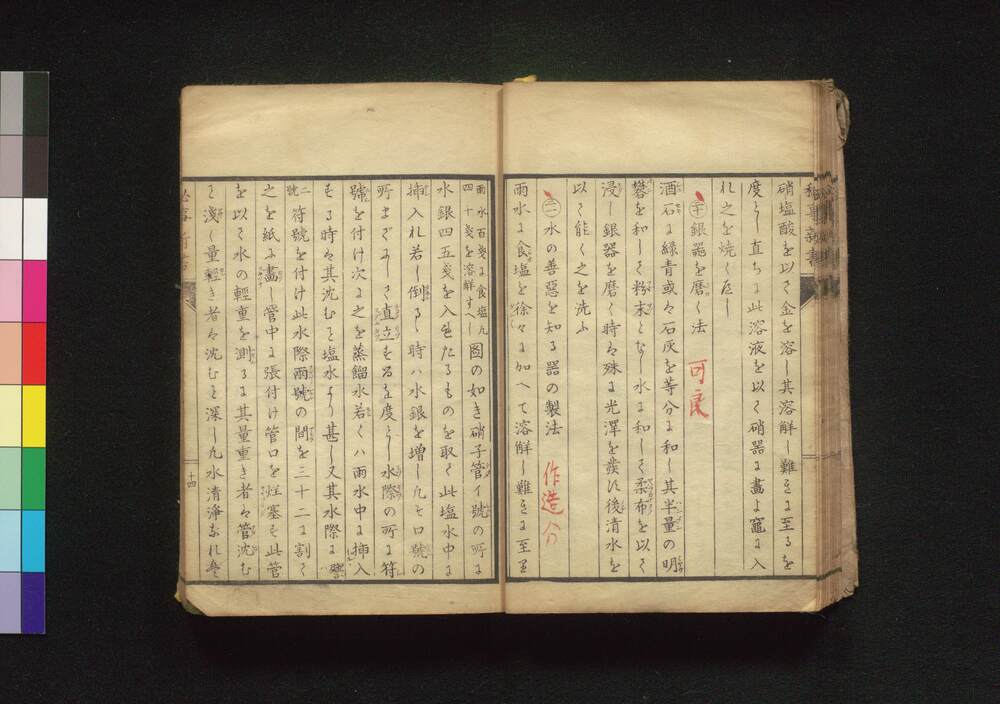 硝塩酸を以て金を溶し其溶解し難きに至るを
度とし直ちに此溶液を以て硝器に畫き竈に入
れ之を焼くべし
㊉銀器を磨く法 可良
酒石に緑青或は石灰を等分に和し其半量の明
礬を和して粉末となし水に和して柔布を以て
浸し銀器を磨く時は殊に光澤を發す後清水を
以て能く之を洗ふ
㊁水の善惡を知る器の製法 作造分
雨水に食塩を徐々に加へて溶解し難きに至り
雨水百戔に食塩九
四十戔を溶解すへし
圖の如き硝子管イ號の所に
水銀四五戔を入れたるものを取て此塩水中に
挿入れ若し倒るゝ時ハ水銀を増し凡そロ號の
所まで直立するを度とし水際の所に符
號を付け次に之を蒸餾水若くハ雨水中に挿入
する時は其沈むと塩水より甚し又其水際に
二號
符號を付け此水際兩號の間を三十二に割て
之を紙に畫し管中に張付け管口を塞き此管
を以て水の輕重を測るに其量重き者は管沈む
と淺く量輕き者は沈むと深し凡水清淨なれは
十四